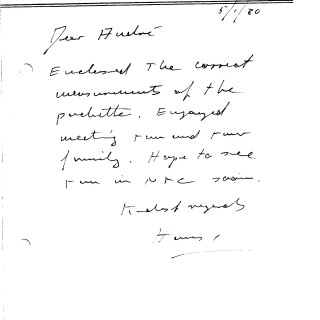 5/1/80
Dear André
Enclosed the correct
measurements of the
pochette. Enjoyed
meeting you and your
family. Hope to see
you in NYC soon.
Kindest regards